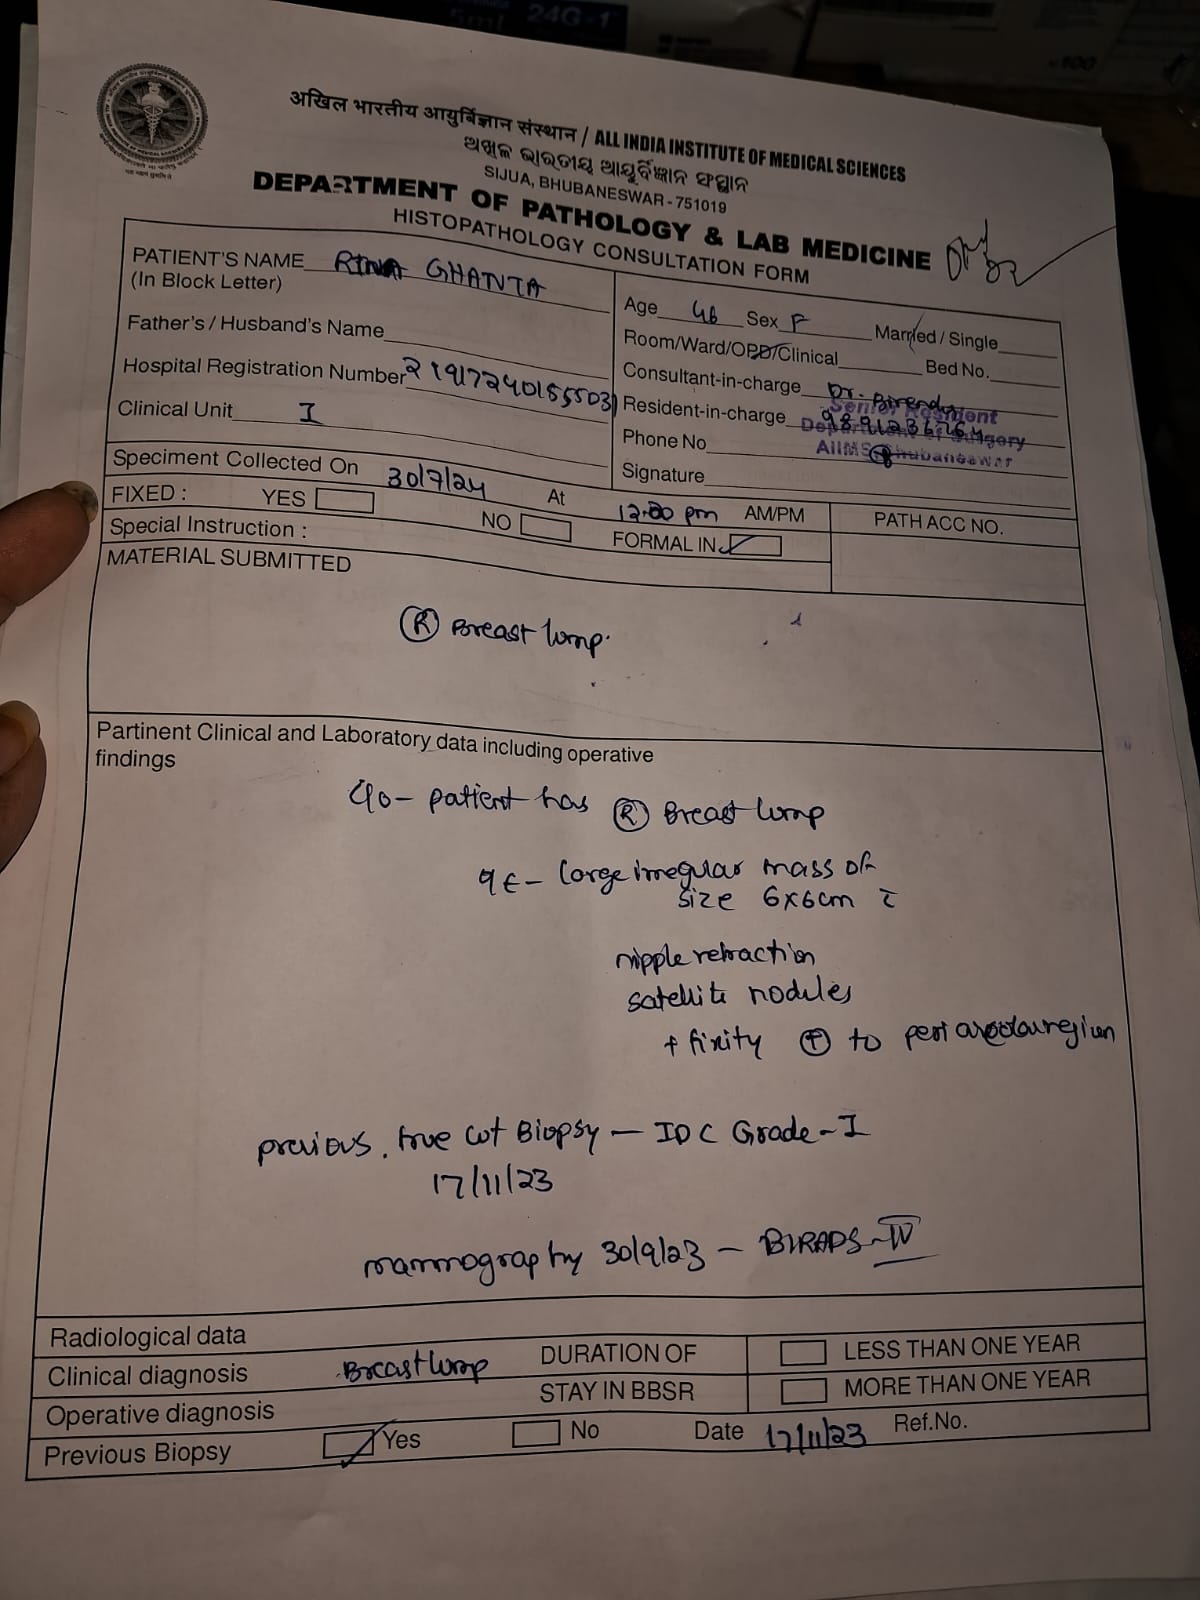 24G-1
5ml
×100
अखिल भारतीय आयुर्विज्ञान संस्थान / ALL INDIA INSTITUTE OF MEDICAL SCIENCES
ଅଖିଳ ଭାରତୀୟ ଆୟୁର୍ବିଜ୍ଞାନ ସଂସ୍ଥାନ
SIJUA, BHUBANESWAR - 751019
DEPARTMENT OF PATHOLOGY & LAB MEDICINE
HISTOPATHOLOGY CONSULTATION FORM
PATIENT'S NAME RINA GHANTA
(In Block Letter)
Father's / Husband's Name
Hospital Registration Number
Clinical Unit I
Age 46 Sex F Married / Single
Room/Ward/OPD/Clinical Bed No.
Consultant-in-charge Dr.
Resident-in-charge
Phone No
Signature
Senior Resident
Department of Surgery
AIIMS Bhubaneswar
Speciment Collected On 30/7/24 At 12.00 pm AM/PM
PATH ACC NO.
FIXED : YES NO FORMAL IN
Special Instruction :
MATERIAL SUBMITTED
Ⓡ Breast lump.
Partinent Clinical and Laboratory data including operative
findings
C/o - patient has Ⓡ Breast lump
O/E - large irregular mass of
size 6x6cm c̄
nipple retraction
satellite nodules
+ fixity ⊕ to peri areolar region
previous true cut Biopsy - IDC Grade - I
17/11/23
mammography 30/9/23 - BIRADS - IV
Radiological data
Clinical diagnosis Breast lump
Operative diagnosis
DURATION OF
STAY IN BBSR
LESS THAN ONE YEAR
MORE THAN ONE YEAR
Previous Biopsy Yes No Date 17/11/23 Ref.No.